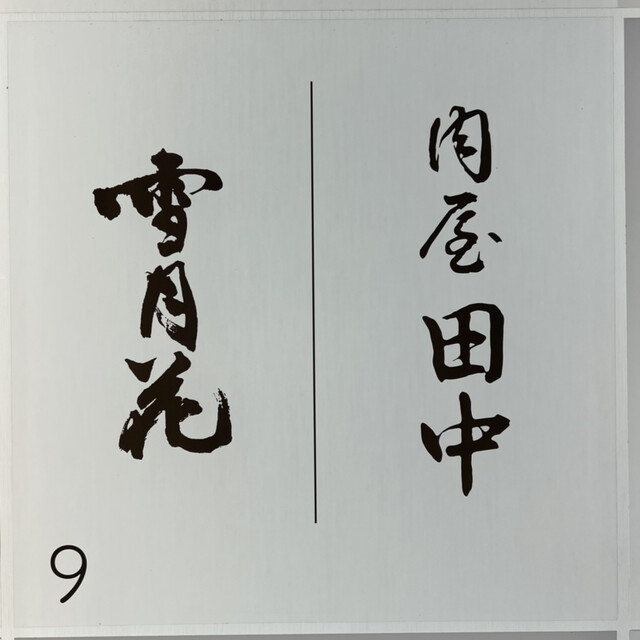 肉屋 田中
雪月花
9